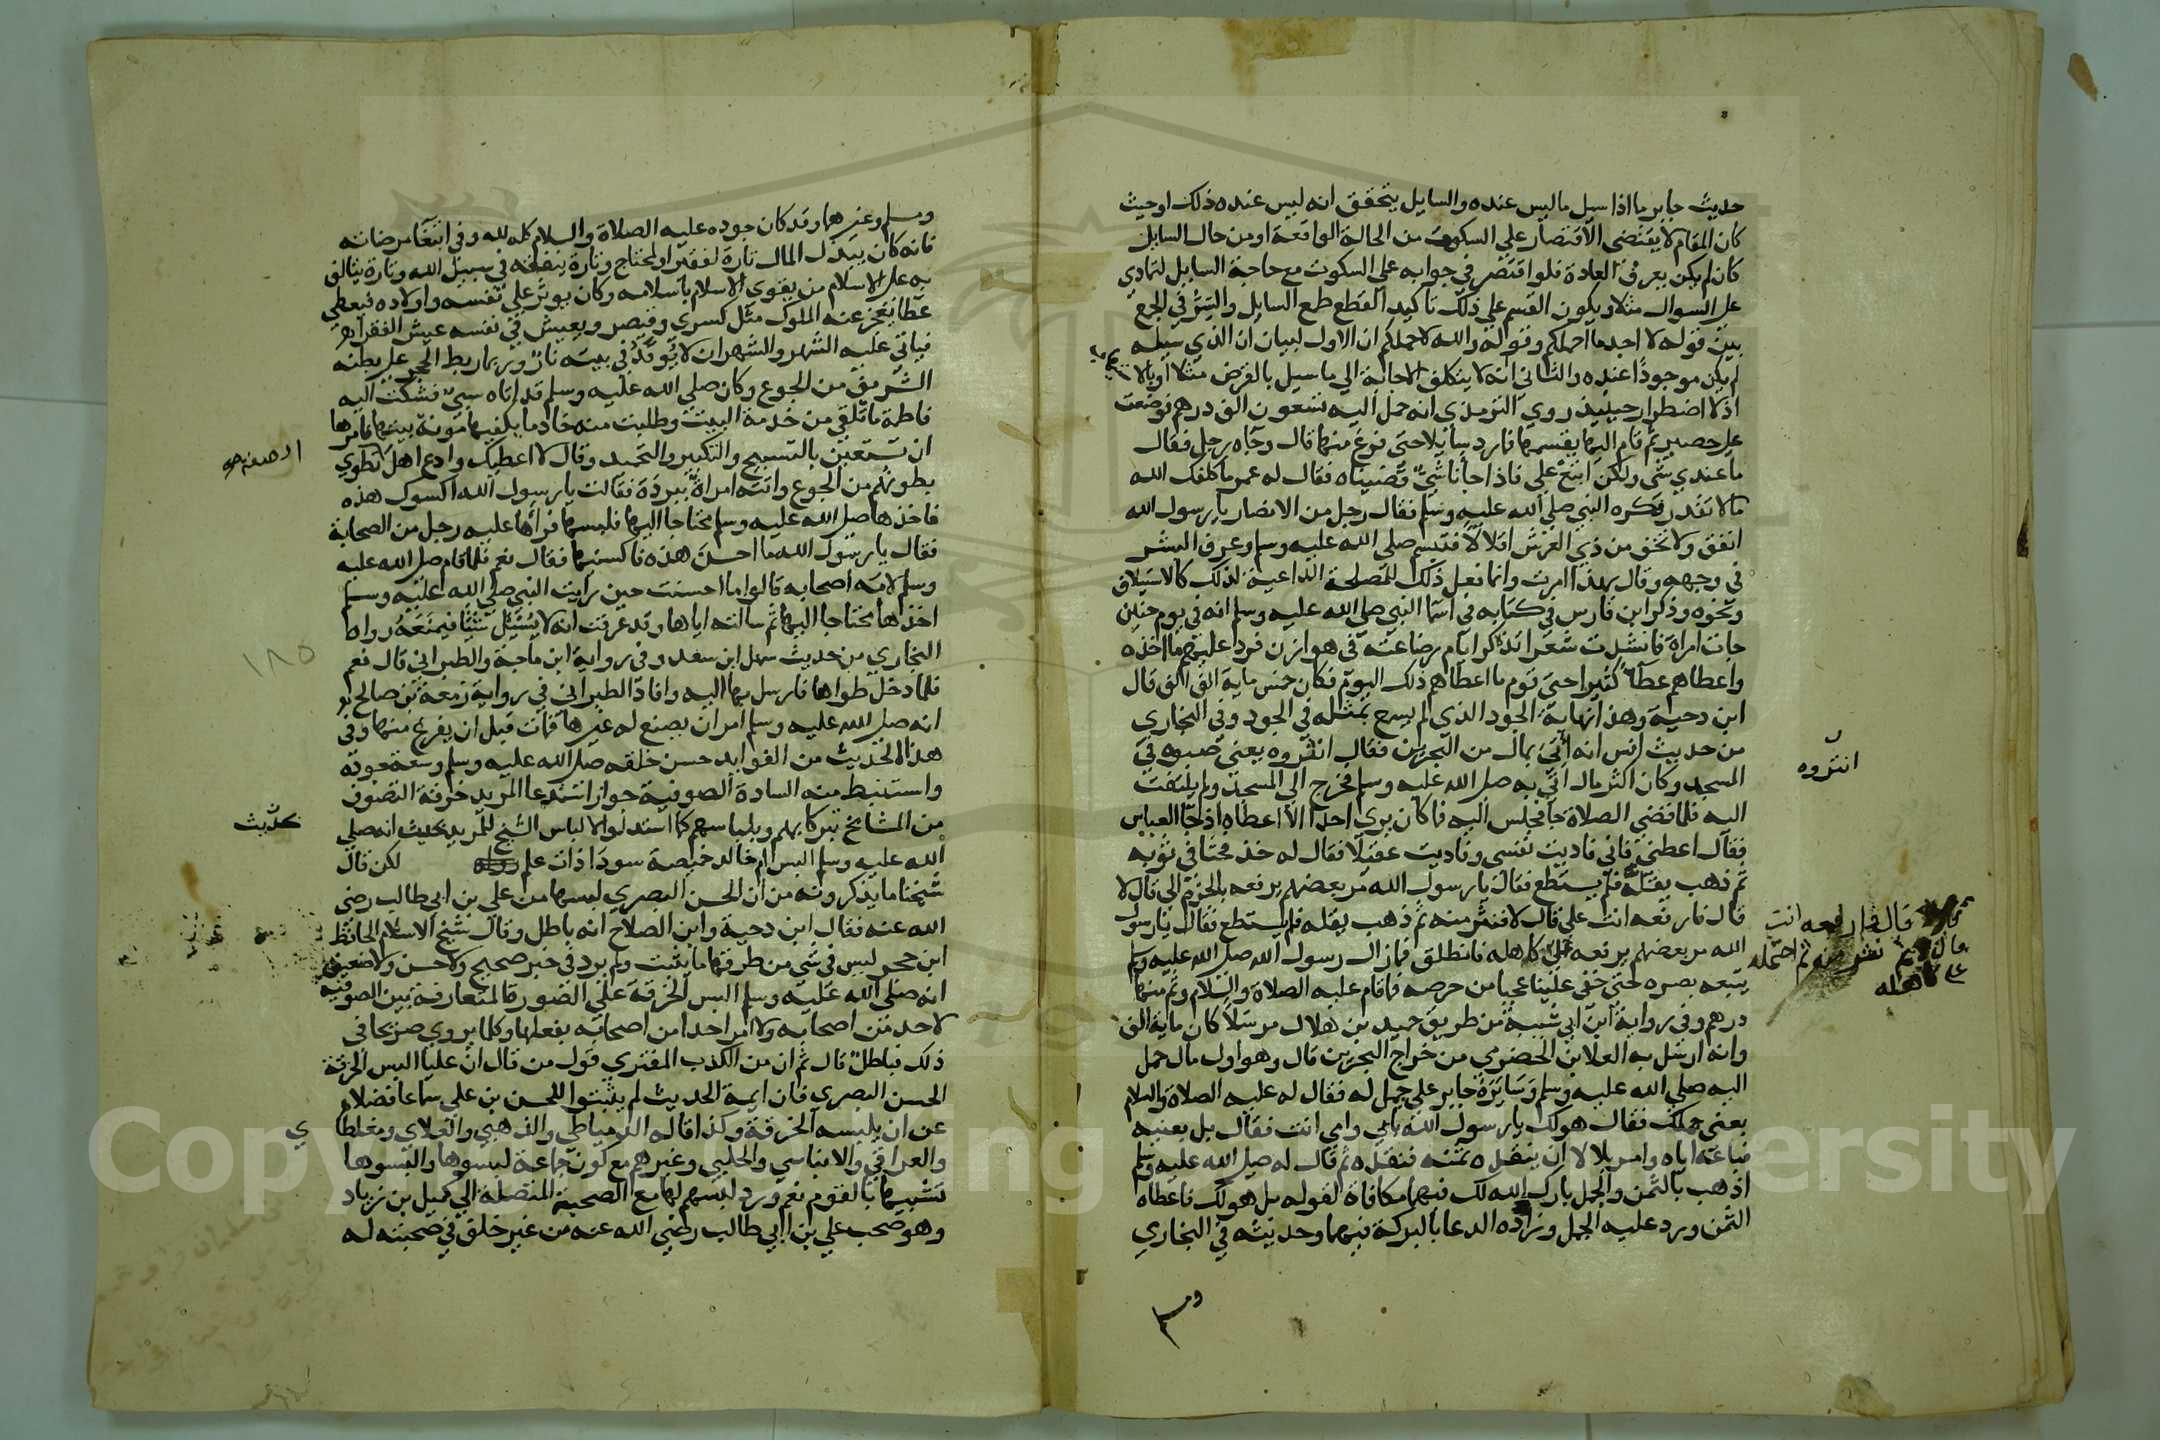 حديث جابر ما اذا سيل ما ليس عنده والسايل يتحقق انه ليس عنده ذلك او حيث
كان المقام لا يقتضى الاقتصار على السكوت من الحالة الواقعة او من حال السايل
كان لم يكن يعرف العادة فلو اقتصر في جوابه على السكوت مع حاجة السايل لتمادي
على السوال مثلا ويكون القسم على ذلك تاكيد القطع طمع السايل والسر في الجمع
بين قوله لا اجد ما احملكم وقوله والله لا احملكم ان الاول لبيان ان الذي سيله
لم يكن موجودا عنده والثاني انه لا يتكلف الاجابة الي ما سيل بالقرض مثلا او بالا
اذ لا اضطرار حينيذ روي الترمذي انه حمل اليه تسعون الف درهم فوضعت
على حصير ثم قام اليها يقسمها فما رد سايلا حتى فرغ منها قال وجاه رجل فقال
ما عندي شى ولكن ابتع على فاذا جانا شي قضيناه فقال له عمر ما كلفك الله
ما لا تقدر فكره النبي صلى الله عليه وسلم فقال رجل من الانصار يا رسول الله
انفق ولا تخف من ذي العرش اقلالا فتبسم صلى الله عليه وسلم وعرف البشر
في وجهه وقال بهذا امرت وانما نعل ذلك للمصلحة الداعية لذلك كالاستيلاف
ونحوه وذكر ابن فارس في كتابه في اسما النبي صلى الله عليه وسلم انه في يوم حنين
جات امراة فانشدت شعرا تذكر ايام رضاعته في هوازن فرد عليهم ما اخذه
واعطاهم عطاء كثيرا حتى قوم ما اعطاهم ذلك اليوم فكان خمس ماية الف الف قال
ابن دحية وهذا نهاية الجود الذي لم يسمع بمثله في الجود وفي البخاري
من حديث انس انه اتى بمال من البحرين فقال انثروه يعني صبوه في
المسجد وكان اكثر مال اتي به صلى الله عليه وسلم فخرج الي المسجد ولم يلتفت
اليه فلما قضى الصلاة جا فجلس اليه فما كان يري احدا الا اعطاه اذ جا العباس
فقال اعطني فاني فاديت نفسى وفاديت عقيلا فقال له خذ فحثا في ثوبه
ثم ذهب يقله فلم يستطع فقال يا رسول الله مر بعضهم يرفعه الي قال لا
قال فارفعه انت على قال لا فنثر منه ثم ذهب يقله فلم يستطع فقال يا رسول
الله مر بعضهم يرفعه على كاهله فانطلق فما زال رسول الله صلى الله عليه وسلم
يتبعه بصره حتى خفى علينا عجبا من حرصه فما قام عليه الصلاة والسلام وثم منها
درهم وفي رواية ابن ابي شيبة من طريق حميد بن هلال مرسلا كان ماية الف
وانه ارسل به العلا بن الحضرمي من خراج البحرين قال وهو اول مال حمل
اليه صلى الله عليه وسلم وسايره جابر على جمل له فقال له عليه الصلاة والسلام
بعني جملك فقال هو لك يا رسول الله بابي وامي انت فقال بل بعنيه
فباعه اياه وامر بلالا ان ينقده ثمنه فنقده ثم قال له صلى الله عليه وسلم
اذهب بالثمن والجمل بارك الله لك فيهما مكافاة لقوله بل هو لك فاعطاه
الثمن ورد عليه الجمل وزاده الدعا بالبركة فيهما وحديثه في البخاري
انثروه
قال فارفعه انت
ومسلم وغيرهما وقد كان جوده عليه الصلاة والسلام كله لله وفى ابتغا مرضاته
فانه كان يبذل المال تارة لفقير او لمحتاج وتارة ينفقه في سبيل الله وتارة يتالف
به على الاسلام من يقوى الاسلام باسلامه وكان يوثر على نفسه واولاده فيعطى
عطا يعجز عنه الملوك مثل كسرى وقيصر ويعيش في نفسه عيش الفقراء
فياتي عليه الشهر والشهران لا يوقد في بيته نار وربما ربط الحجر على بطنه
الشريف من الجوع وكان صلى الله عليه وسلم قد اتاه سبي فشكت اليه
فاطمة ما تلقى من خدمة البيت وطلبت منه خادما يكفيها مونة بيتها فامرها
ان تستعين بالتسبيح والتكبير والتحميد وقال لا اعطيك وادع اهل تطوي
بطونهم من الجوع واتته امراة ببردة فقالت يا رسول الله اكسوك هذه
فاخذها صلى الله عليه وسلم محتاجا اليها فلبسها فراها عليه رجل من الصحابة
فقال يا رسول الله ما احسن هذه فاكسنيها فقال نعم فلما قام صلى الله عليه
وسلم لامه اصحابه قالوا ما احسنت حين رايت النبي صلى الله عليه وسلم
اخذها محتاجا اليها ثم سالته اياها وقد عرفت انه لا يسئل شيئا فيمنعه رواه
البخاري من حديث سهل ابن سعد وفى رواية ابن ماجة والطبراني قال نعم
فلما دخل طواها فارسل بها اليه وافاد الطبراني في رواية زمعة بن صالح
انه صلى الله عليه وسلم امر ان يصنع له غيرها فمات قبل ان يفرغ منها وفى
هذا الحديث من الفوايد حسن خلقه صلى الله عليه وسلم وسعة جوده
واستنبط منه السادة الصوفية جواز استدعا المريد خرقة التصوف
من المشايخ تبركا بهم وبلباسهم كما استدلوا لالباس الشيخ للمريد بحديث انه صلى
الله عليه وسلم البس ام خالد خميصة سودا ذات علم لكن قال
شيخنا ما يذكرونه من ان الحسن البصري لبسها من على بن ابي طالب رضى
الله عنه فقال ابن دحية وابن الصلاح انه باطل وقال شيخ الاسلام الحافظ
ابن حجر ليس فى شي من طرقها ما يثبت ولم يرد في خبر صحيح ولا حسن ولا ضعيف
انه صلى الله عليه وسلم البس الخرقة على الصورة المتعارفة بين الصوفية
لاحد من اصحابه ولا امر احدا من اصحابه بفعلها وكلما يروي صريحا في
ذلك فباطل قال ثم ان من الكذب المفتري قول من قال ان عليا البس الخرقة
الحسن البصري فان ايمة الحديث لم يثبتوا للحسن بن على سماعا فضلا
عن ان يلبسه الخرقة وكذا قاله الدمياطي والذهبي والعلاي ومغلطا
ي
والعراقي والابناسي والحلبي وغيرهم مع كون جماعة لبسوها والبسوها
تشبيها بالقوم نعم ورد لبسهم لها مع الصحبة المتصلة الي كميل بن زياد
وهو صحب على بن ابي طالب رضى الله عنه من غير خلف في صحبته له
بحديث
١٨٥